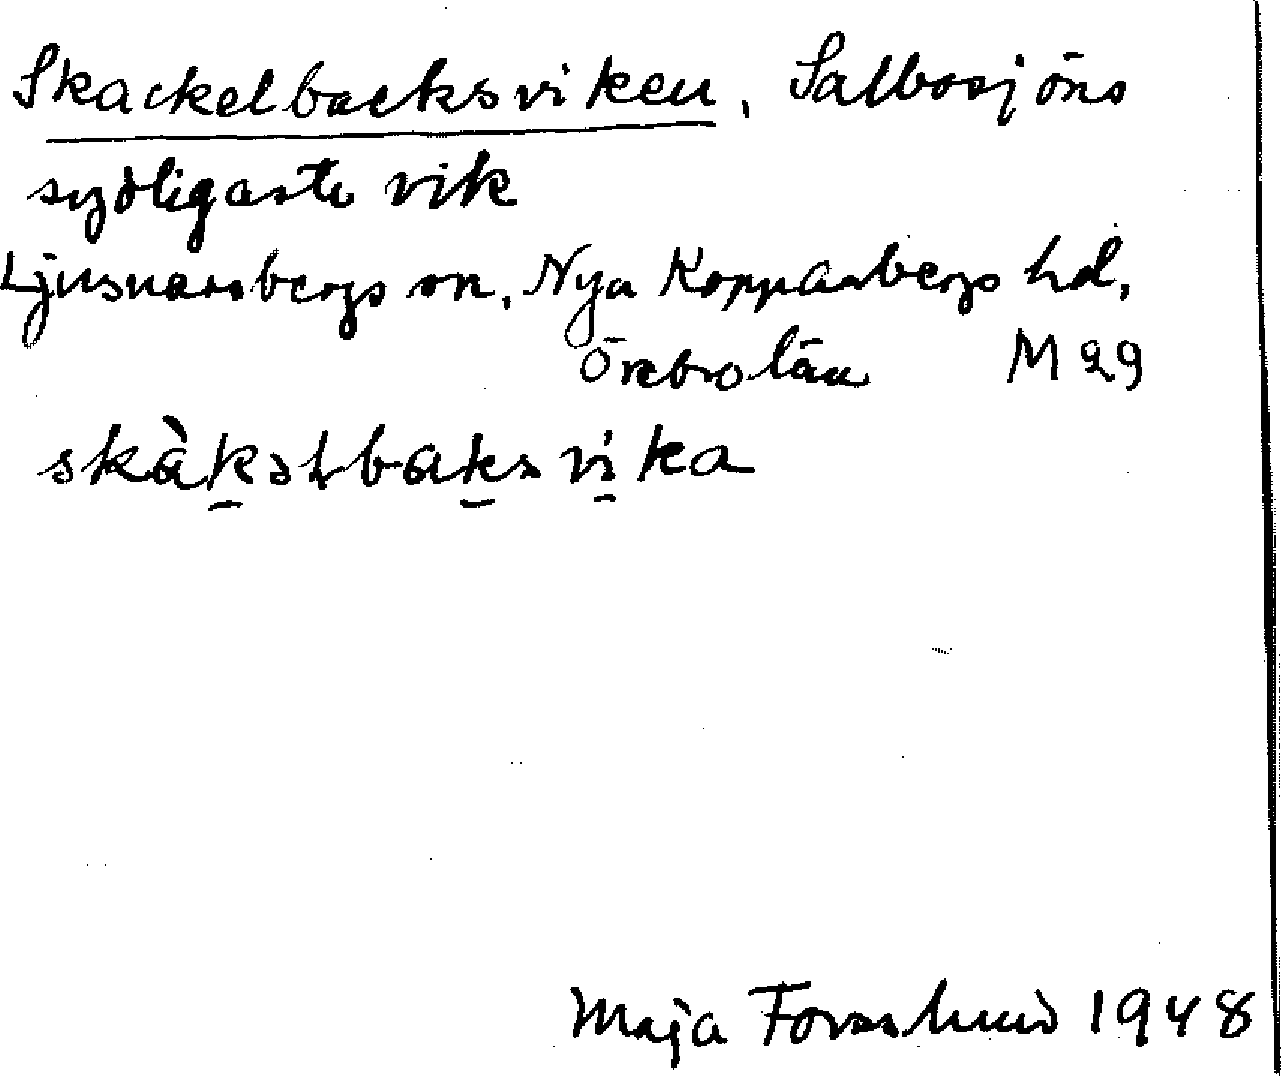 Skackelbacksviken, Salbosjöns
sydligaste vik
Ljusnarsbergs sn, Nya Kopparbergs hd,
Örebro län M 29
skàk̠əlbak̠svi̠ka
Maja Forsslund 1948